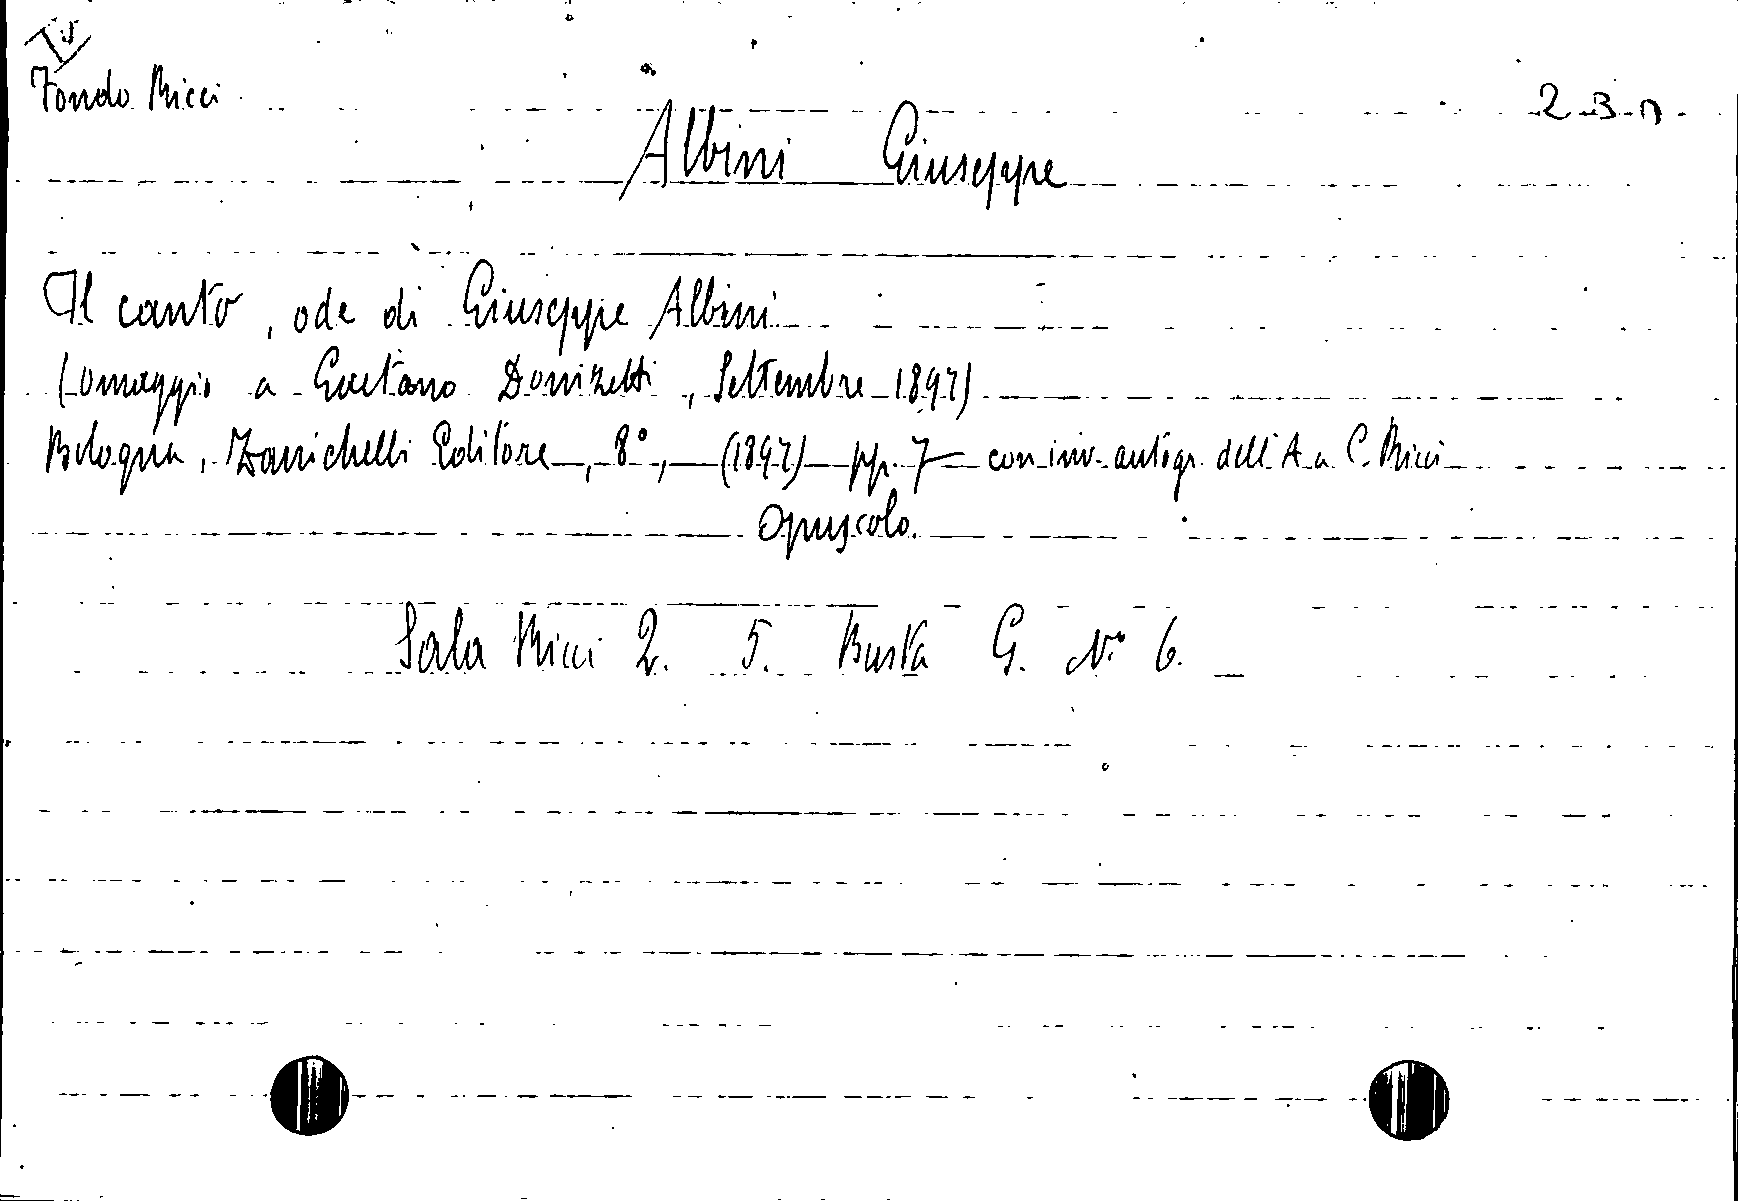 Fondo Ricci
2 3 A
Albini Giuseppe
Il canto, ode di Giuseppe Albini
(omaggio a Gaetano Donizetti, Settembre 1897)
Bologna, Zanichelli Editore, 8°, (1897) pp. 7 con inv. autogr. dell'A. a C. Ricci
Opuscolo.
Sala Ricci 2. 5. Busta G. N° 6.